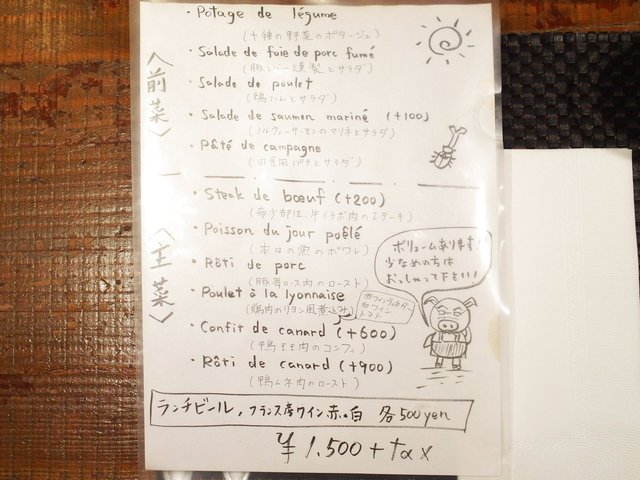 ・Potage de légume
(十種の野菜のポタージュ)
・Salade de foie de porc fumé
(豚レバー燻製とサラダ)
・Salade de poulet
(鶏ハムとサラダ)
・Salade de saumon mariné (+100)
(ノルウェーサーモンのマリネとサラダ)
・Pâté de campagne
(田舎風パテとサラダ)
〈前菜〉
・Steak de bœuf (+200)
(希少部位、牛イチボ肉のステーキ)
・Poisson du jour poêlé
(本日の魚のポワレ)
・Rôti de porc
(豚肩ロース肉のロースト)
・Poulet à la lyonnaise
(鶏肉のリヨン風煮込み)
赤ワインヴィネガー
白ワイン
トマト
・Confit de canard (+600)
(鴨モモ肉のコンフィ)
・Rôti de canard (+900)
(鴨ムネ肉のロースト)
〈主菜〉
ボリュームあります!
少なめの方は
おっしゃって下さい!
ランチビール, フランス産ワイン赤・白 各500yen
¥1,500+tax